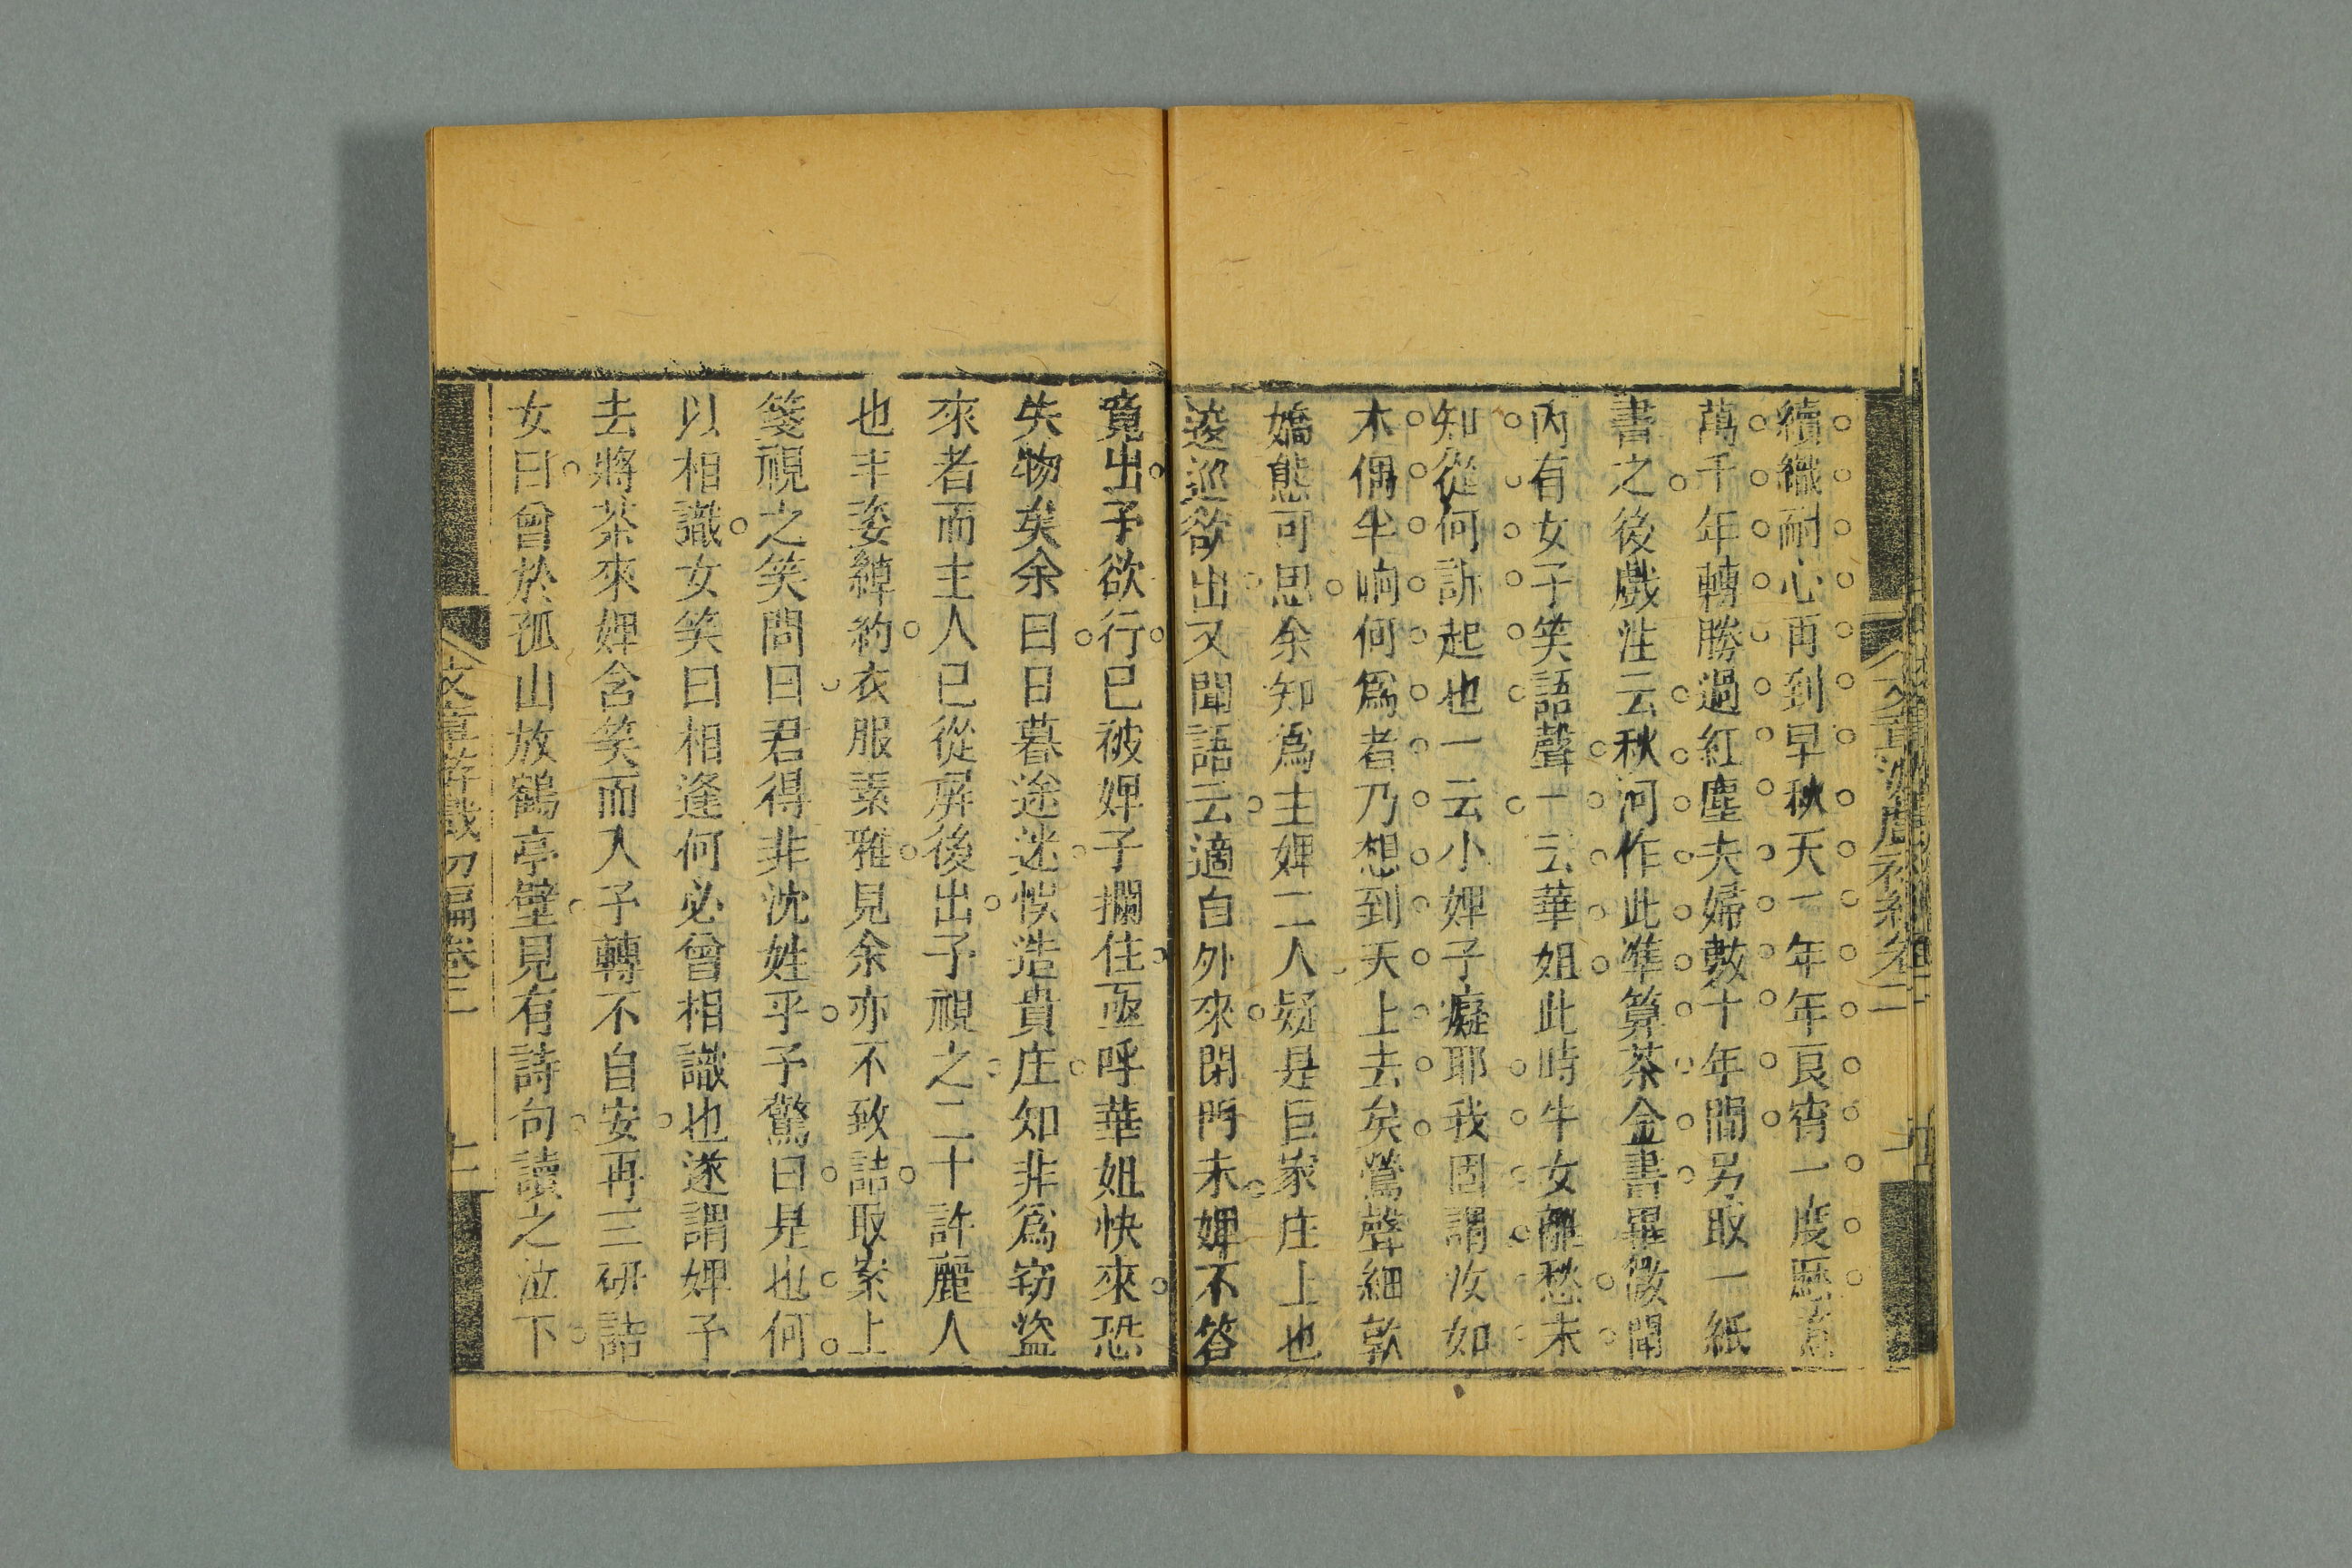 續織耐心再到早秋天一年年良宵一度歷
萬千年轉勝過紅塵夫婦數十年間另取一紙
書之後戲注云秋河作此準算茶金書畢微聞
內有女子笑語聲一云華姐此時牛女離愁未
知從何訴起也一云小婢子癡耶我固謂汝如
木偶半晌何爲者乃想到天上去矣鶯聲細軟
嬌態可思余知爲主婢二人疑是巨家庄上也
逡巡欲出又聞語云適自外來閉門未婢不答
竟出予欲行已被婢子攔住亟呼華姐快來恐
失物矣余曰日暮途迷悞造貴庄知非爲窃盜
來者而主人已從屏後出予視之二十許麗人
也丰姿綽約衣服素雅見余亦不致詰取案上
箋視之笑問曰君得非沈姓乎予驚曰是也何
以相識女笑曰相逢何必曾相識也遂謂婢子
去將茶來婢含笑而入予轉不自安再三研詰
女曰曾於孤山放鶴亭壁見有詩句讀之泣下
文章游戲初編卷二
十二